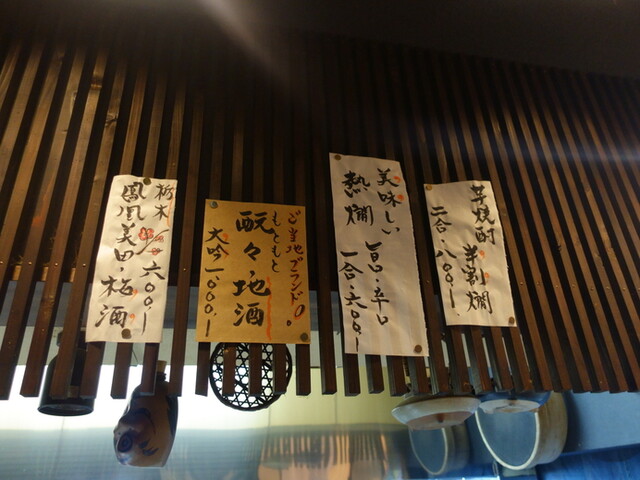 芋焼酎
半割燗
二合・八〇〇.ー
美味しい
熱燗
旨口・辛口
一合・六〇〇.ー
ご当地ブランド。
もともと
酛々・地酒
大吟一、〇〇〇.ー
栃木
六〇〇.ー
鳳凰美田・梅酒